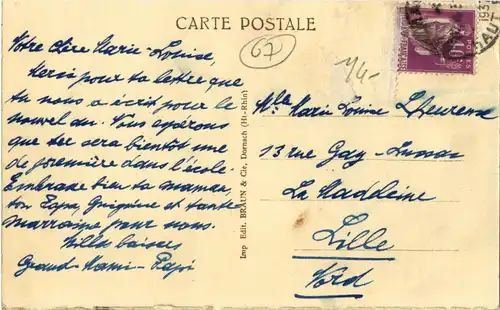 CARTE POSTALE
67
Notre chère Marie-Louise,
Merci pour ta lettre que
tu nous a écrit pour le
nouvel an. Nous espérons
que tu sera bientôt une
de première dans l'école.
Embrasse bien ta maman,
ton Papa, et tante
Marraine pour nous.
Mille baisers
Grand-Mami - Papi
Imp. Edit. BRAUN & Cie, Dornach (Ht-Rhin)
Mlle Marie Louise Lheureux
13 rue Gay-Lussac
La Madeleine
Lille
Nord